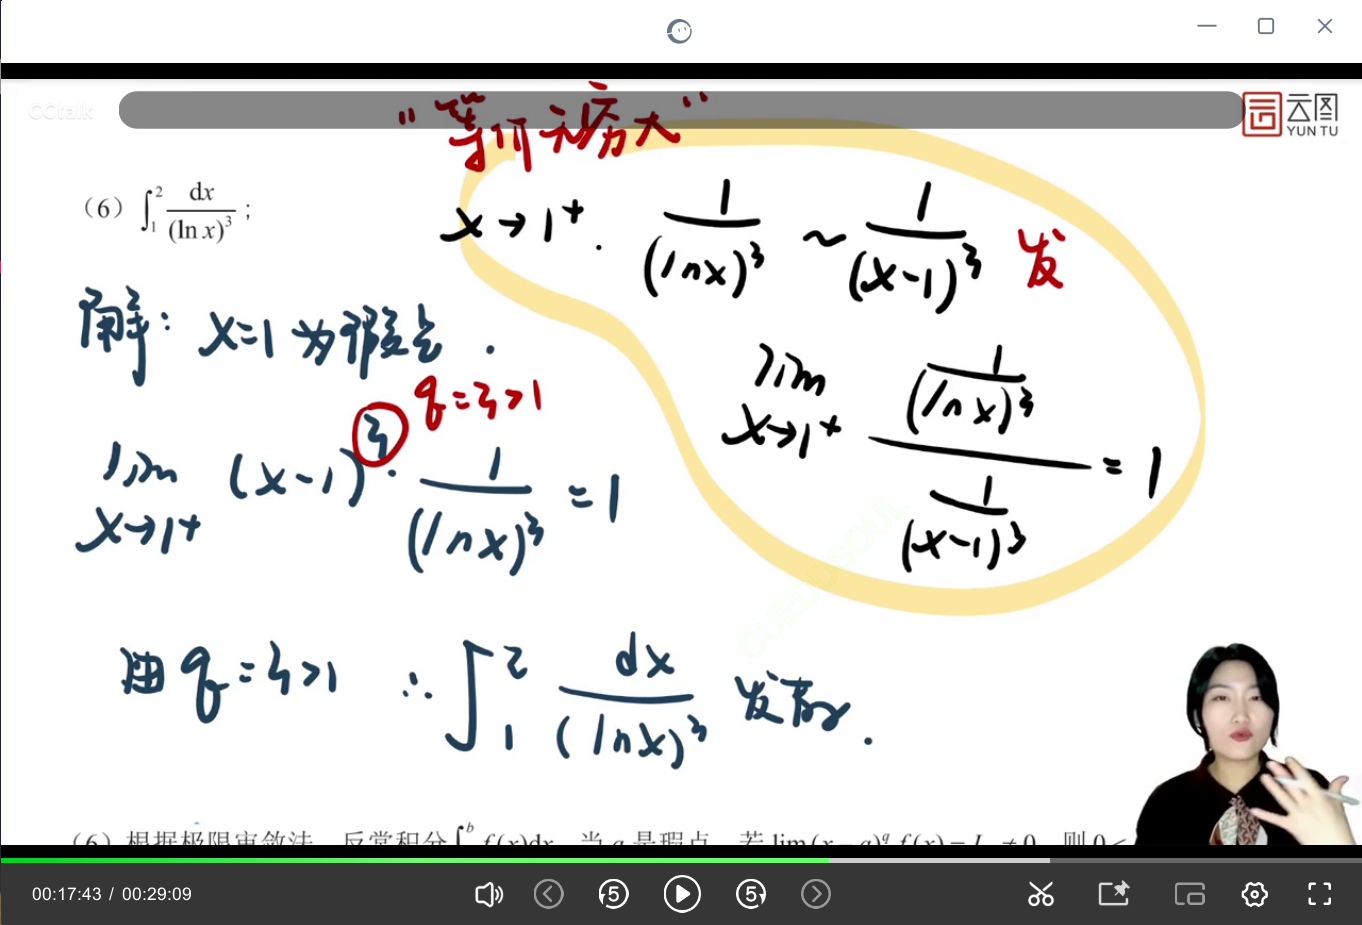 CCtalk
云图
YUN TU
“等价无穷大”
(6) ∫₁² dx/(ln x)³ ;
x→1⁺. 1/(lnx)³ ~ 1/(x-1)³ 发
解: x=1 为瑕点.
q=3>1
lim x→1⁺ (1/(lnx)³)/(1/(x-1)³) = 1
lim x→1⁺ (x-1)³· 1/(lnx)³ = 1
由 q=3>1 ∴ ∫₁² dx/(lnx)³ 发散.
(6) 根据极限审敛法, 反常积分∫ᵇ f(x)dx, 当 a 是瑕点, 若 lim(x-a)^q f(x)=L≠0, 则 0<
00:17:43 / 00:29:09
5
5